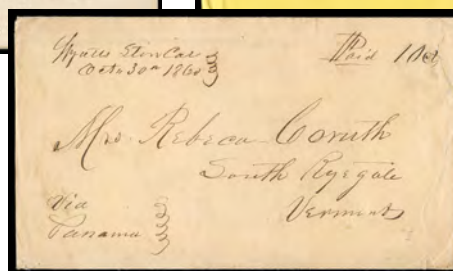 Wyatts Store Cal
Octo 30th 1860
Paid 10c
Mrs. Rebeca Coruth
South Ryegate
Vermont
Via
Panama